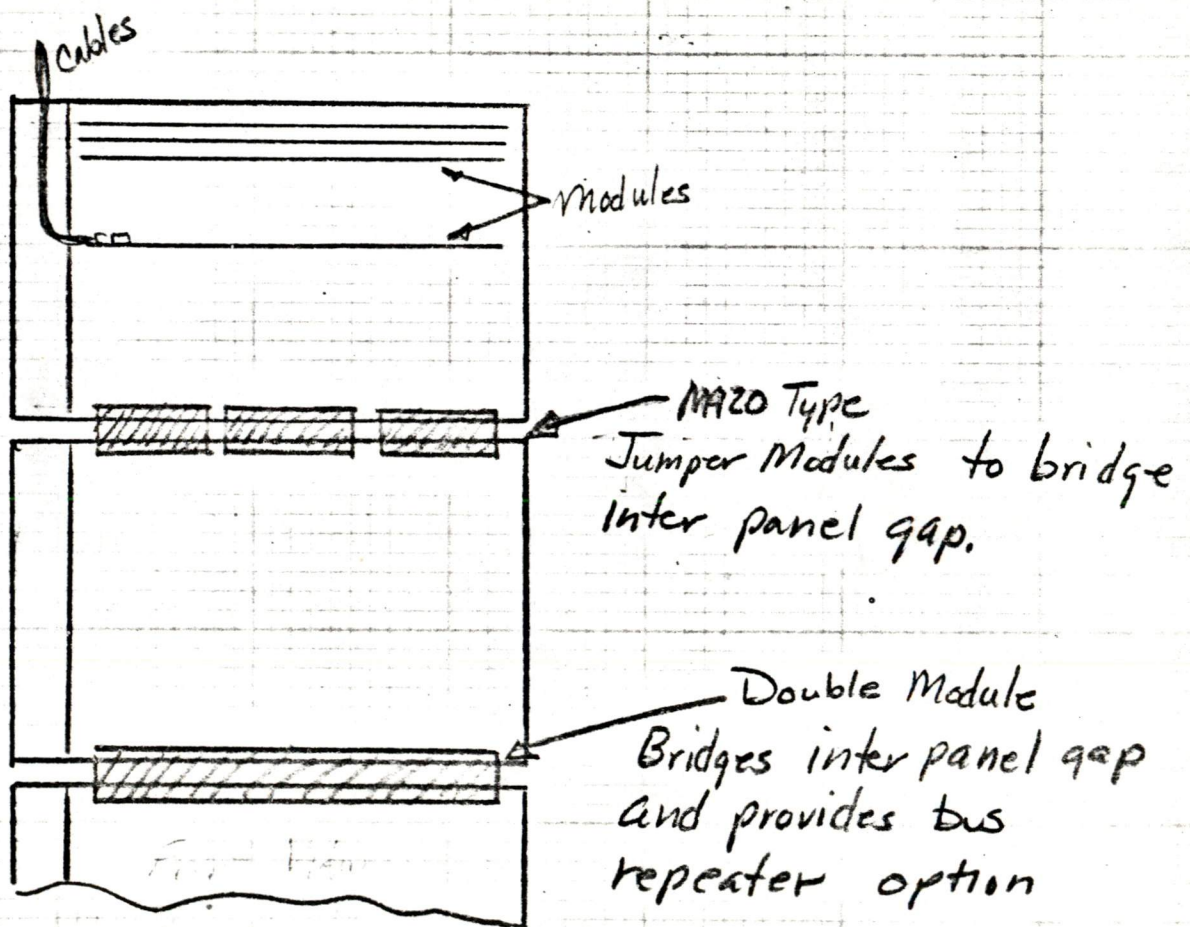 Cables
Modules
M920 Type
Jumper Modules to bridge
inter panel gap.
Double Module
Bridges inter panel gap
and provides bus
repeater option
Front View